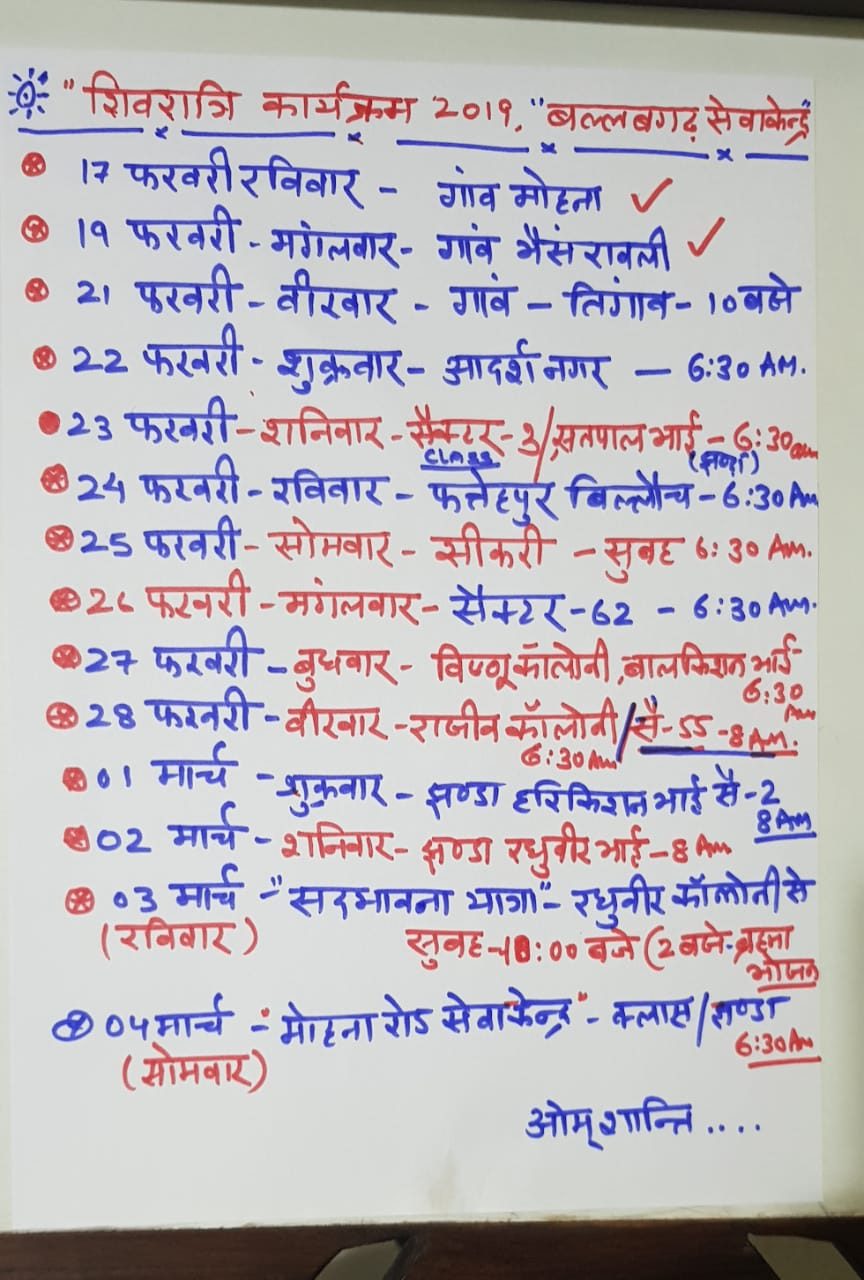 "शिवरात्रि कार्यक्रम 2019." बल्लबगढ़ सेवाकेन्द्र"
17 फरवरी रविवार - गांव मोहना ✓
19 फरवरी - मंगलवार - गांव भैंसरावली ✓
21 फरवरी - वीरवार - गांव - तिगांव - 10 बजे
22 फरवरी - शुक्रवार - आदर्श नगर - 6:30 AM.
23 फरवरी - शनिवार - सैक्टर - 3/सतपाल भाई - 6:30 am
CLASS (झण्डा)
24 फरवरी - रविवार - फत्तेहपुर बिल्लौच - 6:30 Am
25 फरवरी - सोमवार - सीकरी - सुबह 6:30 Am.
26 फरवरी - मंगलवार - सैक्टर - 62 - 6:30 Am.
27 फरवरी - बुधवार - विष्णू कॉलोनी, बालकिशन भाई -
6:30 Am
28 फरवरी - वीरवार - राजीव कॉलोनी/सै-55-8 AM.
6:30 Am
01 मार्च - शुक्रवार - झण्डा हरिकिशन भाई सै-2
8 Am
02 मार्च - शनिवार - झण्डा रघुवीर भाई - 8 Am
03 मार्च - "सदभावना यात्रा" - रघुवीर कॉलोनी से
(रविवार) सुबह - 10:00 बजे (2 बजे - ब्रह्मा
भोजन
04 मार्च - "मोहना रोड सेवाकेन्द्र" - क्लास/झण्डा
(सोमवार) 6:30 Am
ओम् शान्ति....